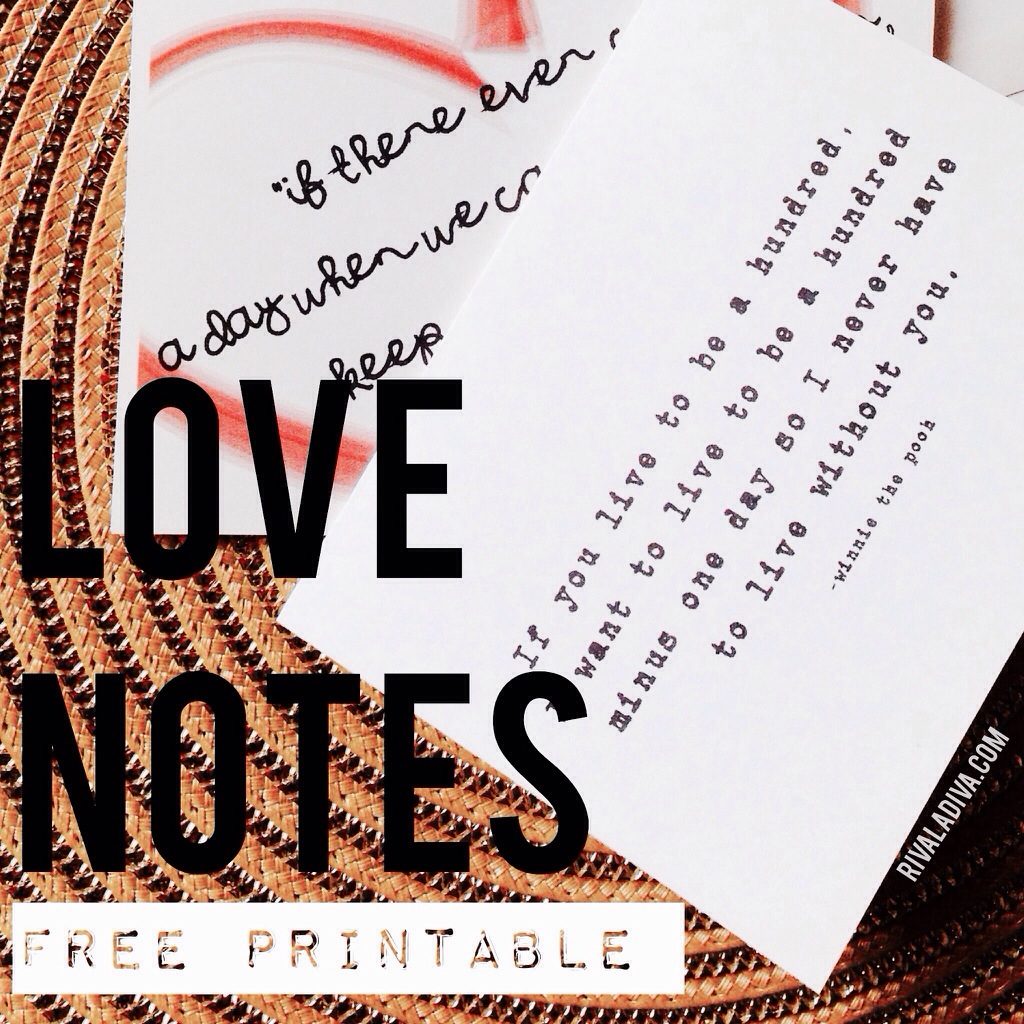 "if there ever
a day when we
keep
If you live to be a hundred,
want to live to be a hundred
minus one day so I never have
to live without you.
-winnie the pooh
LOVE
NOTES
FREE PRINTABLE
RIVALADIVA.COM